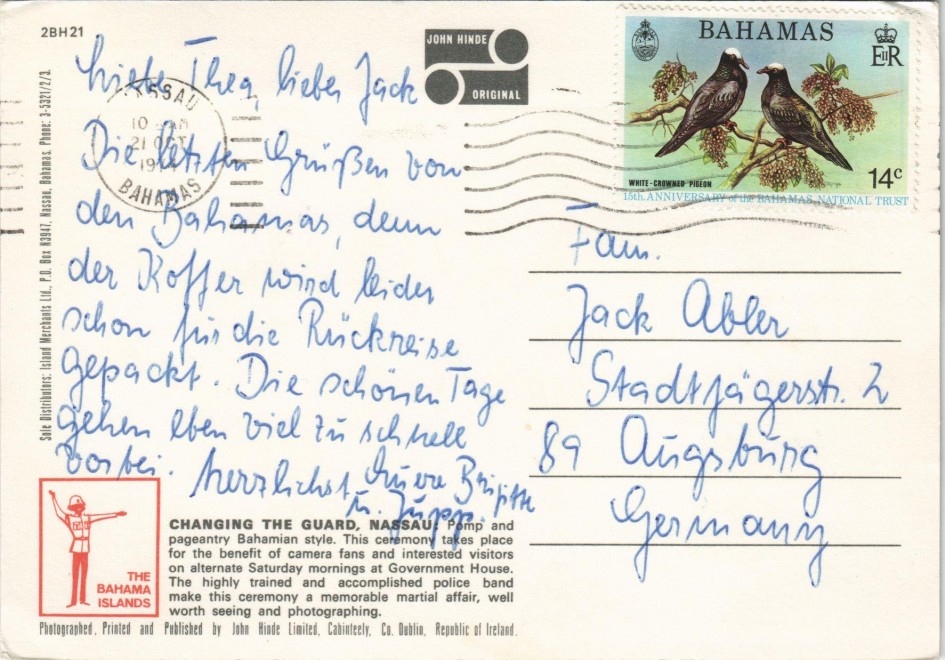 2BH21
JOHN HINDE
ORIGINAL
BAHAMAS
EIIR
WHITE-CROWNED PIGEON
14c
15th ANNIVERSARY of the BAHAMAS NATIONAL TRUST
NASSAU
10 AM
21 OCT
BAHAMAS
Sole Distributors: Island Merchants Ltd., P.O. Box N3947, Nassau, Bahamas. Phone: 3-5321/2/3.
Liebe Thea, lieber Jack
Die letzten Grüßen von
den Bahamas, denn
der Koffer wird leider
schon für die Rückreise
gepackt. Die schönen Tage
gehen eben viel zu schnell
vorbei. Herzlichst Euere Brigitte
u. Jupp.
Fam.
Jack Abler
Stadtjägerstr. 2
89 Augsburg
Germany
THE
BAHAMA
ISLANDS
CHANGING THE GUARD, NASSAU: Pomp and
pageantry Bahamian style. This ceremony takes place
for the benefit of camera fans and interested visitors
on alternate Saturday mornings at Government House.
The highly trained and accomplished police band
make this ceremony a memorable martial affair, well
worth seeing and photographing.
Photographed, Printed and Published by John Hinde Limited, Cabinteely, Co. Dublin, Republic of Ireland.